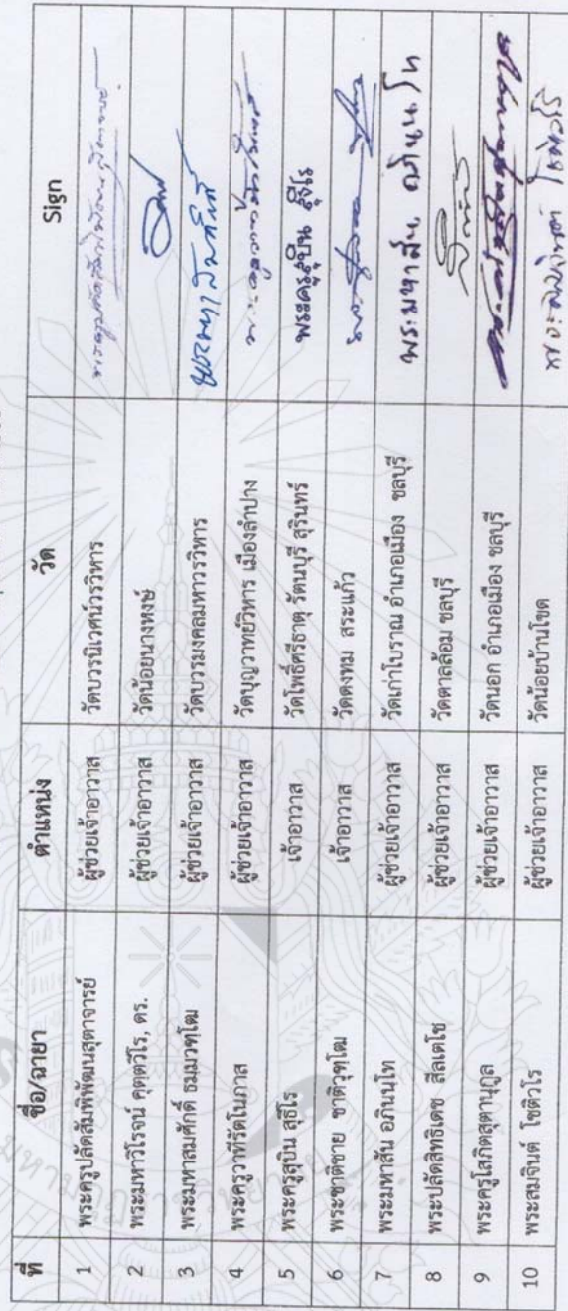 ที่ ชื่อ/ฉายา ตำแหน่ง วัด Sign
1 พระครูปลัดสัมพิพัฒนสุตาจารย์ ผู้ช่วยเจ้าอาวาส วัดบวรนิเวศน์วรวิหาร
2 พระมหาวิโรจน์ คุตฺตวีโร, ดร. ผู้ช่วยเจ้าอาวาส วัดน้อยนางหงษ์
3 พระมหาสมศักดิ์ ธมฺมวฑฺโฒ ผู้ช่วยเจ้าอาวาส วัดบวรมงคลมหาวรวิหาร พระมหาสมศักดิ์
4 พระครูวาทีรัตโนภาส ผู้ช่วยเจ้าอาวาส วัดบุญวาทย์วิหาร เมืองลำปาง
5 พระครูสุบิน สุธีโร เจ้าอาวาส วัดโพธิ์ศรีธาตุ รัตนบุรี สุรินทร์ พระครูสุบิน สุธีโร
6 พระชาติชาย ชาติวุฑฺโฒ เจ้าอาวาส วัดดงทม สระแก้ว
7 พระมหาสัน อภินนฺโท ผู้ช่วยเจ้าอาวาส วัดเก่าโบราณ อำเภอเมือง ชลบุรี พระมหาสัน อภินนฺโท
8 พระปลัดสิทธิเดช สีลเตโช ผู้ช่วยเจ้าอาวาส วัดตาลล้อม ชลบุรี
9 พระครูโสภิตสุตานุกูล ผู้ช่วยเจ้าอาวาส วัดนอก อำเภอเมือง ชลบุรี
10 พระสมจินต์ โชติวโร ผู้ช่วยเจ้าอาวาส วัดน้อยบ้านโขด พระสมจินต์ โชติวโร